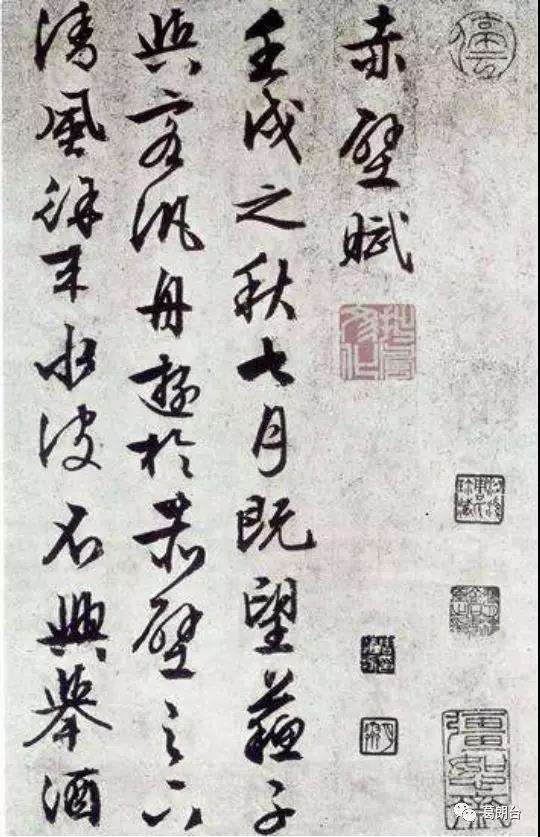 赤壁賦
壬戌之秋七月既望蘇子
與客汎舟遊於赤壁之下
清風徐来水波不興舉酒
葛朗台